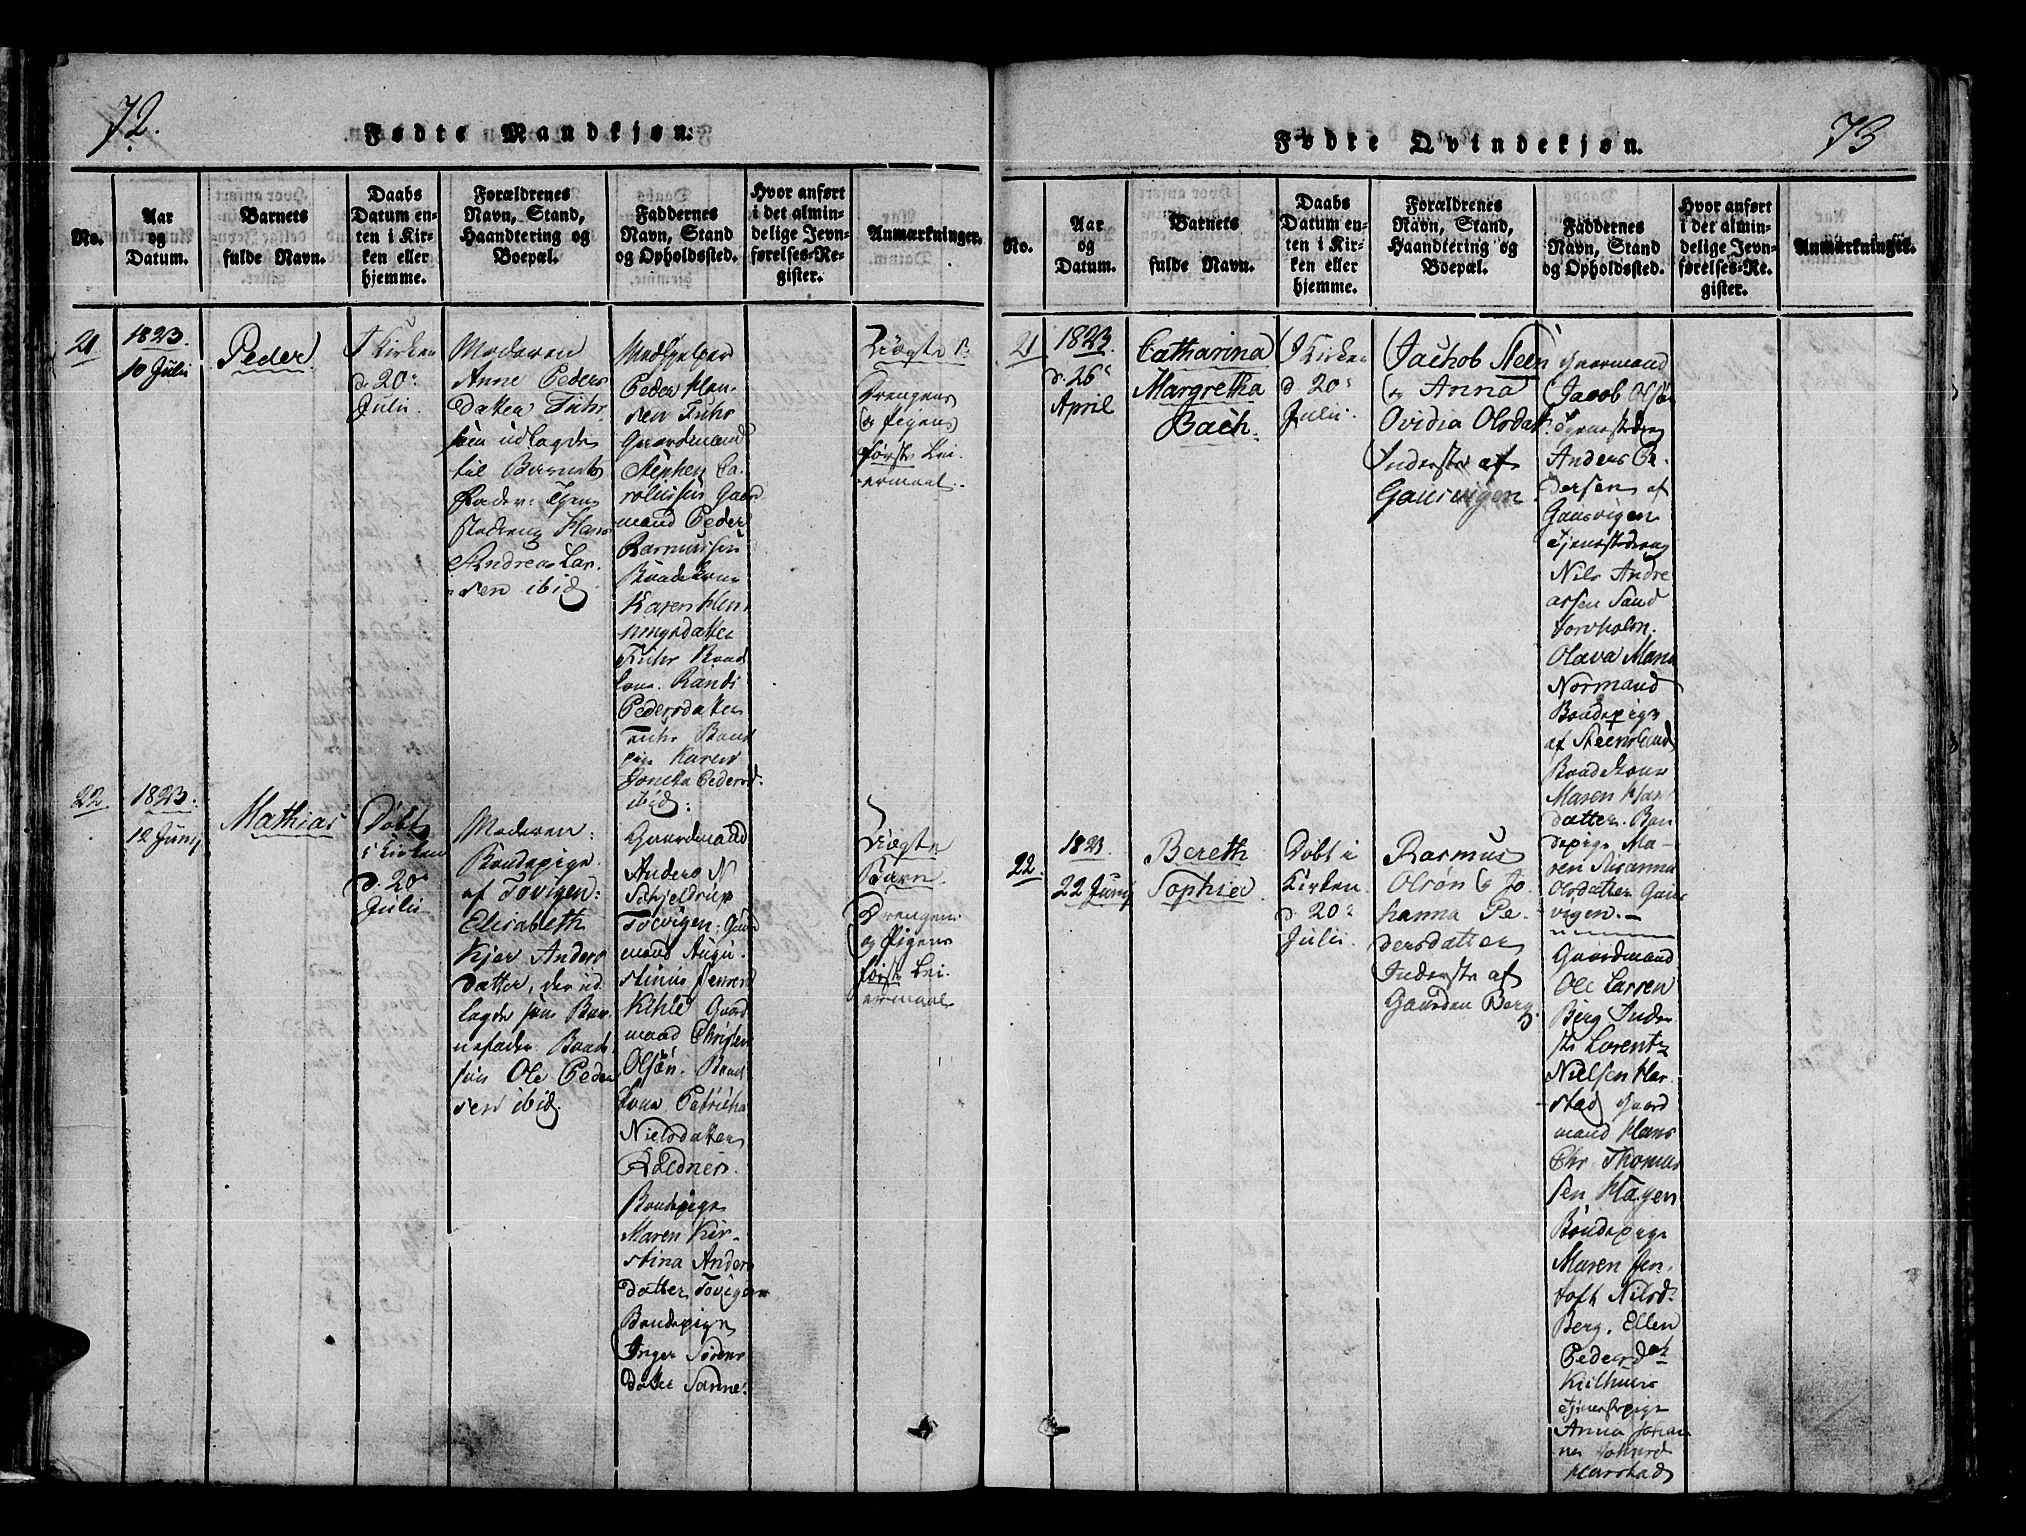 72.
Fødte Mandkjøn.
No.
Aar
og
Datum.
Barnets
fulde Navn.
Daabs
Datum en-
ten i Kir-
ken eller
hjemme.
Forældrenes
Navn, Stand,
Haandtering og
Boepæl.
Faddernes
Navn, Stand
og Opholdssted.
Hvor anført
i det almin-
delige Jevn-
førelses-Re-
gister.
Anmærkninger.
21
1823.
10 Julii
Peder
I Kirken
d. 20de
Julii.
Moderen
Anne Peders
Datter Fuhr
som udlagde
til Barnets
Fader: Tjene
stedreng Hans
Andreas Lar-
sen ibid.
Peder Han-
sen Fuhr
Gaardmand
Stephen Ca-
rolussen Gaard
mand Peder
Rasmussen
Bondekone
Karen Hen
ningsdatter
Fuhr Bond
kone Randi
Pedersdatter
Fuhr Bond
pige Karen
Pedersd.
ibid:
Uægte B.
Drengens
og Pigens
første Lei-
ermaal.
22
1823.
12 Junij
Mathias
Døbt
i Kirken
d. 20de
Julii
Moderen:
Bondepige
af Tovigen:
Elisabeth
Kjer Anders
datter, der ud
lagde som Bar-
nefader Bonde
søn Ole Peder
sen ibid.
Gaardmand
Anders N
Schjeldrup
Tovigen: Gaard
mand Augu-
stinus Jensen
Kihle Gaard
mand Christen
Olsøn. Bond
kone
Nielsdatter
Bondepige
Maren Kir-
stina Anders
datter Tovigen
Bondepige
Inger Sørens
datter Sanne.
Uægte
Barn.
Drengens
og Pigens
første Lei-
ermaal
73
Fødte Qvindekjøn.
No.
Aar
og
Datum.
Barnets
fulde Navn.
Daabs
Datum en-
ten i Kir-
ken eller
hjemme.
Forældrenes
Navn, Stand,
Haandtering og
Boepæl.
Faddernes
Navn, Stand
og Opholdssted.
Hvor anført
i det almin-
delige Jevn-
førelses-Re-
gister.
Anmærkninger.
21
1823.
d. 26de
April
Catharina
Margretha
Bach.
I Kirken
d. 20de
Julii.
Jachob Steen
og Anna
Ovidia Olsdatt.
Inderste af
Gausvigen
Gaarmand
Jacob Olsøn
Tjenestedreng
Anders Pe-
dersen af
Gausvigen
Tjenestedreng
Nils Andre
assen Sand
torvholm.
Olava Maria
Normand
Bondepige
af Steensland
Bondekone
Maren Han
datter. Bon
depige Ma-
ren Susanna
Olsdatter Gaus
vigen.
22.
1823
22 Junij
Bereth
Sophia
Døbt i
Kirken
d. 20de
Julii.
Rasmus
Olsøn og Jo
hanna Pe-
dersdatter
Inderste af
Gaarden Berg.
Gaardmand
Ole Larsen
Berg Inder
ste Lorentz
Nielsen Har
stad Gaard
mand Hans
Chr Thomas
sen Hagen
Bondepige
Maren Jen
toft Nilsd.
Berg. Ellen
Pedersdatt
Kilhuus
Tjenestepige
Anna Johan
na
Harstad